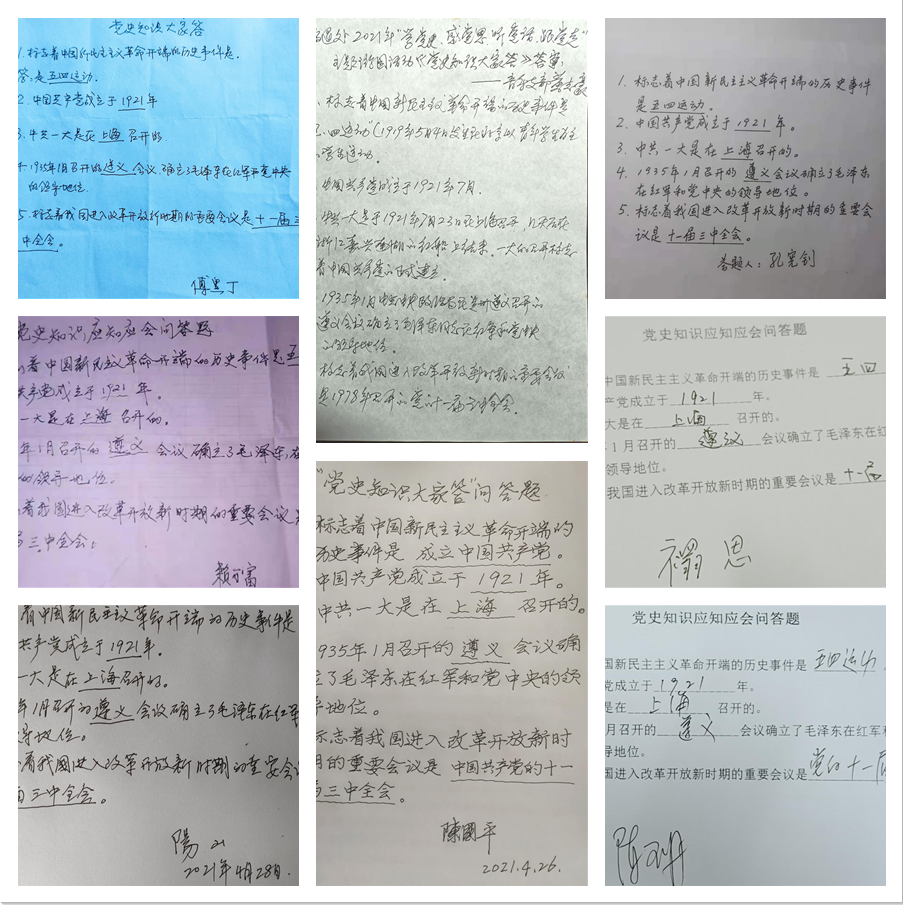 党史知识大家答
1.标志着中国新民主主义革命开端的历史事件是
答:是五四运动.
2.中国共产党成立于1921年
3.中共一大是在上海召开的
4.1935年1月召开的遵义会议确立了毛泽东在红军和党中央
的领导地位.
5.标志着我国进入改革开放新时期的重要会议是十一届三
中全会。
傅黑丁
党史知识应知应会问答题
着中国新民主主义革命开端的历史事件是五
共产党成立于1921年.
一大是在上海召开的.
年1月召开的遵义会议确立了毛泽东在
的领导地位.
着我国进入改革开放新时期的重要会议是
三中全会.
赖富
着中国新民主主义革命开端的历史事件是
共产党成立于1921年.
一大是在上海召开的.
年1月召开的遵义会议确立了毛泽东在红军
导地位.
着我国进入改革开放新时期的重要会议
三中全会.
陽山
2021年4月28日.
2021年“学党史、感党恩、听党话、跟党走”
主题活动《党史知识大家答》答案
标志着中国新民主主义革命开端的历史事件是
四运动”(1919年5月4日
学生运动.
中国共产党成立于1921年7月.
中共一大是于1921年7月23日在上海召开
浙江嘉兴南湖的红船上结束.一大的召开标志
着中国共产党的正式建立.
1935年1月中共中央政治局在贵州遵义召开的
遵义会议确立了毛泽东同志在红军和党中央
的领导地位.
标志着我国进入改革开放新时期的重要会议
是1978年召开的党的十一届三中全会.
“党史知识大家答”问答题
标志着中国新民主主义革命开端的
历史事件是 成立中国共产党。
中国共产党成立于1921年.
中共一大是在上海召开的.
935年1月召开的遵义会议确
立了毛泽东在红军和党中央的领
导地位。
标志着我国进入改革开放新时
期的重要会议是中国共产党的十一
届三中全会。
陳國平
2021.4.26.
1.标志着中国新民主主义革命开端的历史事件
是五四运动.
2.中国共产党成立于1921年。
3.中共一大是在上海召开的。
4.1935年1月召开的遵义会议确立了毛泽东
在红军和党中央的领导地位.
5.标志着我国进入改革开放新时期的重要会
议是十一届三中全会。
答题人:孔宪钊
党史知识应知应会问答题
中国新民主主义革命开端的历史事件是 五四
产党成立于1921年。
大是在上海召开的。
1月召开的遵议会议确立了毛泽东在红
领导地位。
我国进入改革开放新时期的重要会议是十一届
思
党史知识应知应会问答题
国新民主主义革命开端的历史事件是五四运动
党成立于1921年。
是在上海召开的。
月召开的遵义会议确立了毛泽东在红军
导地位。
国进入改革开放新时期的重要会议是党的十一届